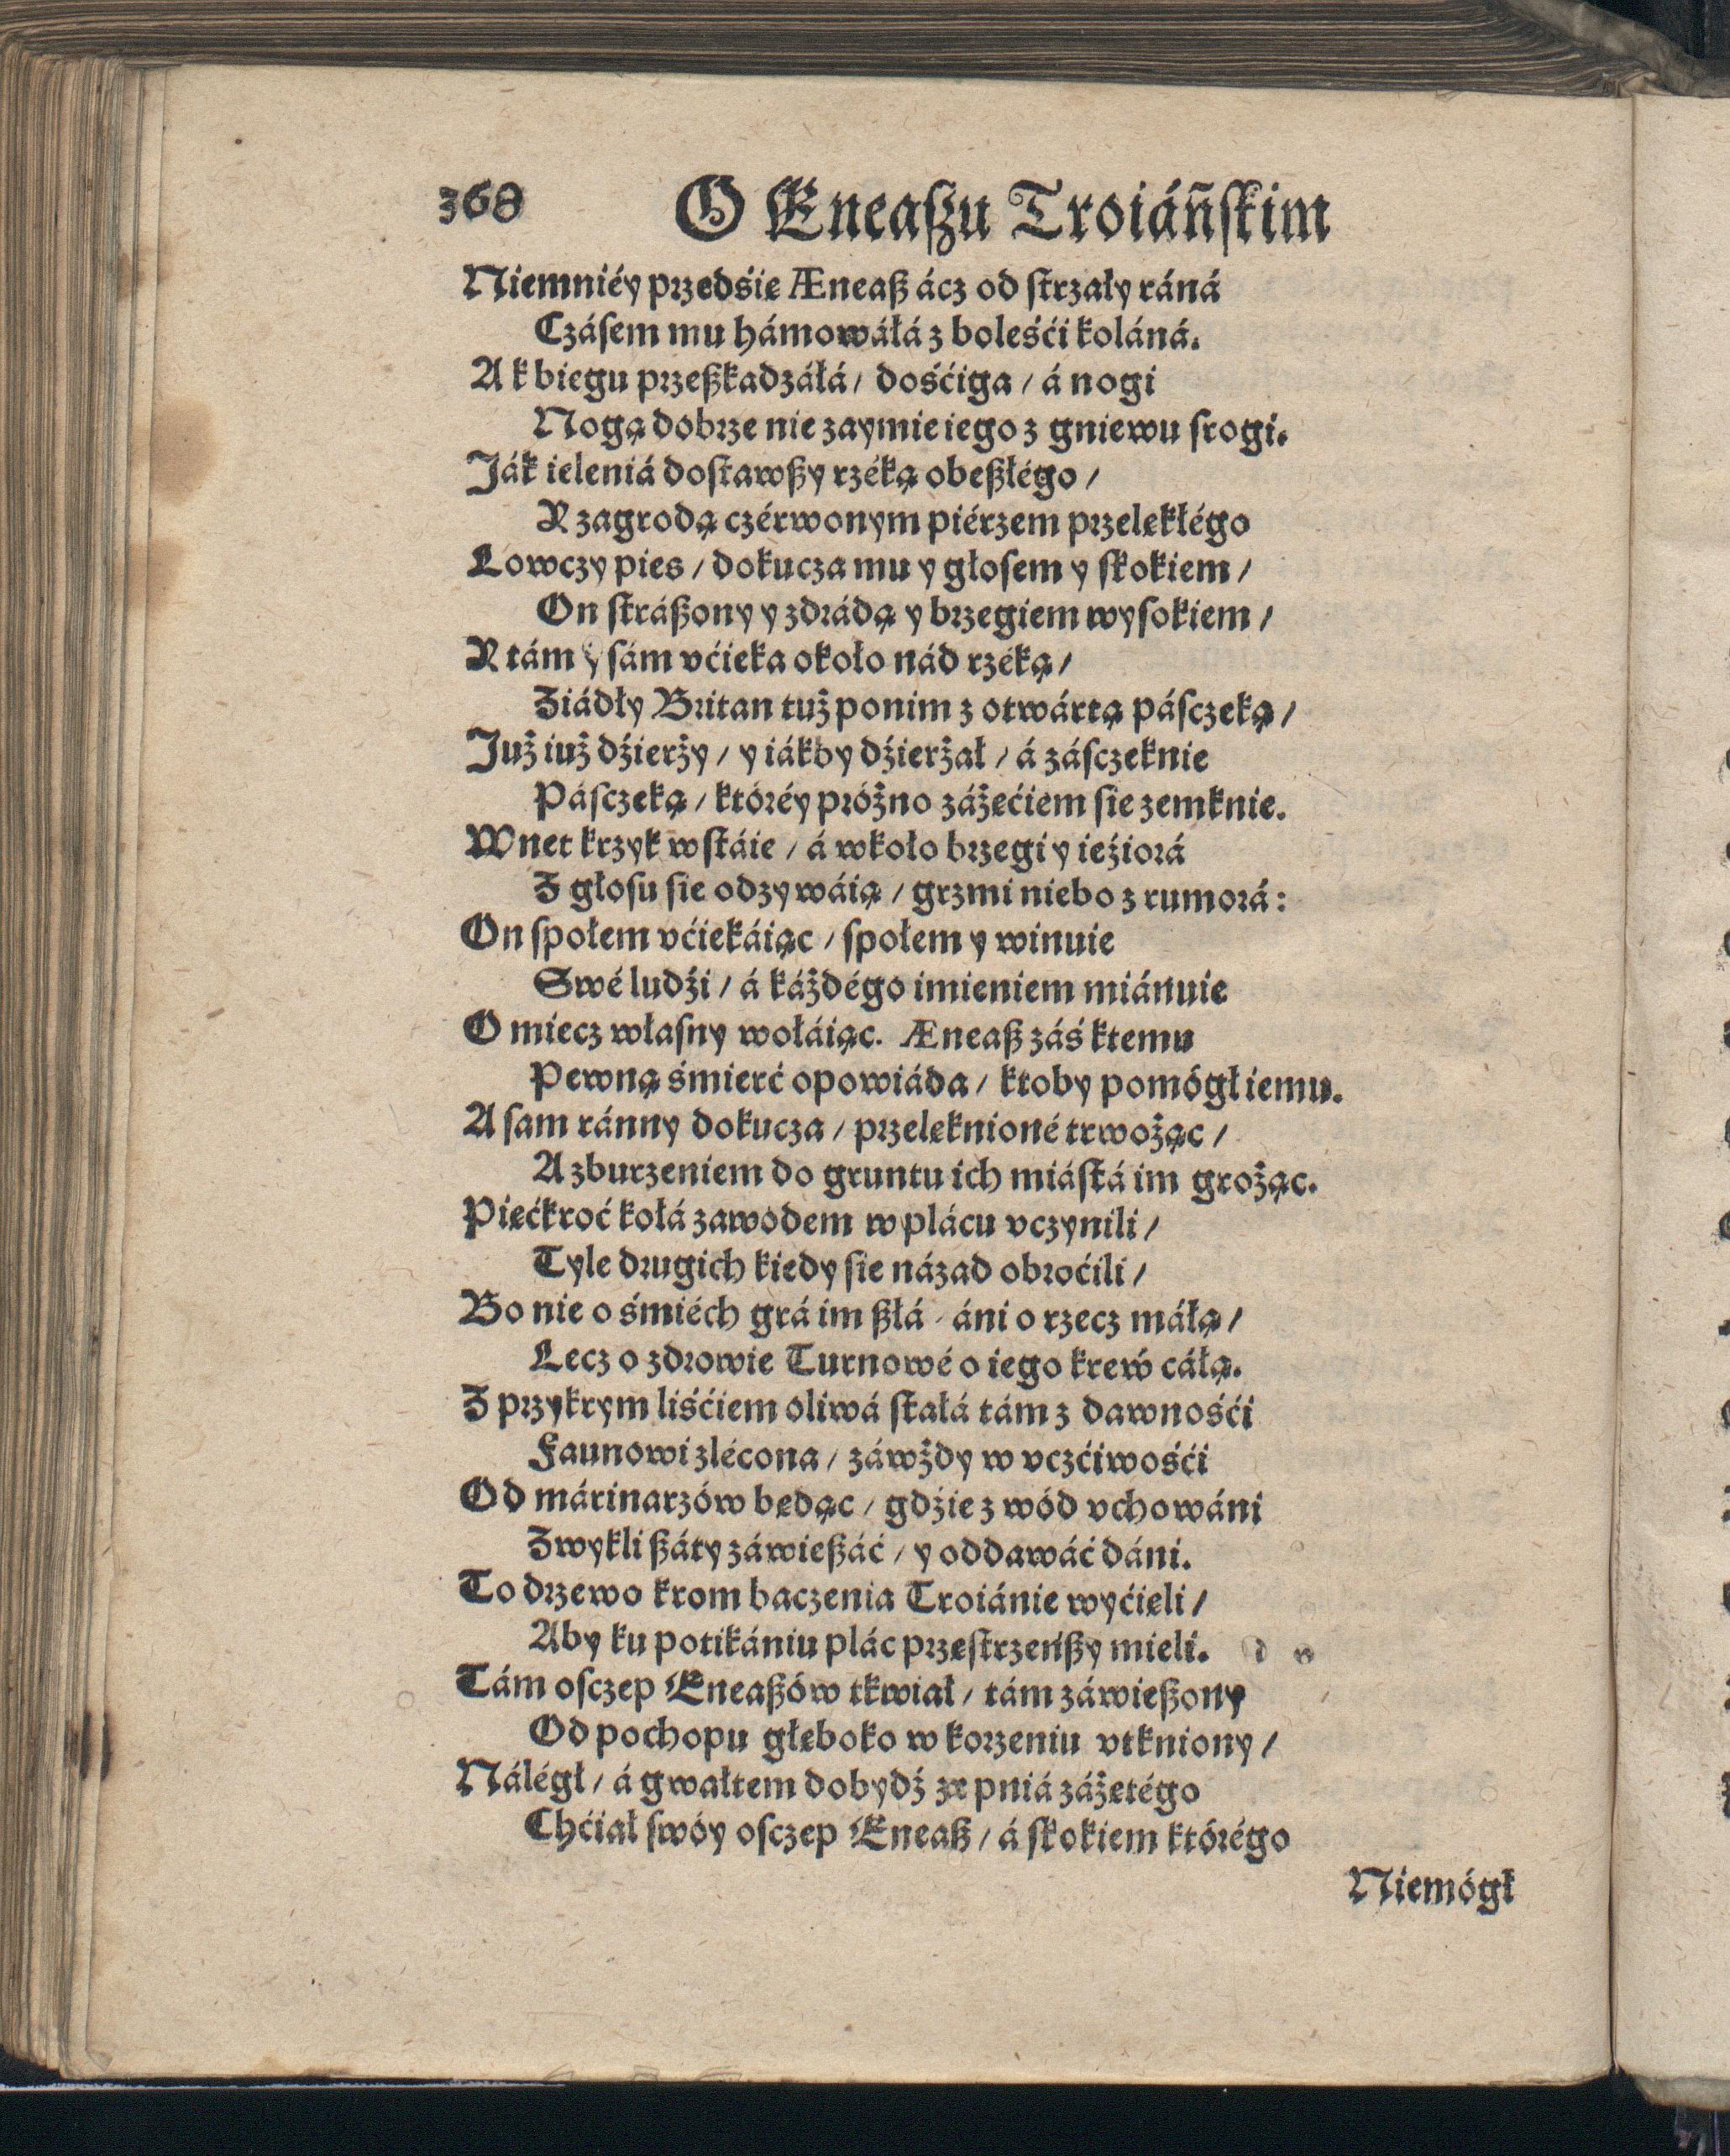 368 O Eneaſzu Troiáńſkim
Niemniéy przedśię Æneaß ácz od ſtrzały ráná
Czáſem mu hámowáłá z boleśći koláná.
A k biegu przeßkadzáłá / dośćiga / á nogi
Nogą dobrze nie zaymie iego z gniewu ſrogi.
Ják ieleniá doſtawßy rzéką obeßłégo /
Y zagrodą czérwonym piérzem przelękłégo
Lowczy pies / dokucza mu y głoſem y ſkokiem /
On ſtráßony y zdrádą y brzegiem wyſokiem /
Y tám y ſám vćieka około nád rzéką /
Ziádły Britan tuż ponim z otwártą páſczeką /
Już iuż dźierży / y iákby dźierżał / á záſczeknie
Páſczeką / któréy próżno záżęćiem ſie zemknie.
Wnet krzyk wſtáie / á wkoło brzegi y ieźiorá
Z głoſu ſie odzywáią / grzmi niebo z rumorá:
On ſpołem vćiekáiąc / ſpołem y winuie
Swé ludźi / á káżdégo imieniem miánuie
O miecz własny wołáiąc. Æneaß záś ktemu
Pewną śmierć opowiáda / ktoby pomógł iemu.
A ſam ránny dokucza / przelęknioné trwożąc /
A zburzeniem do gruntu ich miáſtá im grożąc.
Pięćkroć kołá zawodem w plácu vczynili /
Tyle drugich kiedy ſie názad obroćili /
Bo nie o śmiéch grá im ßłá / áni o rzecz máłą /
Lecz o zdrowie Turnowé o iego kreẃ cáłą.
Z przykrym liśćiem oliwá ſtałá tám z dawnośći
Faunowi zlécona / záwżdy w vczćiwośći
Od márinarzów będąc / gdźie z wód vchowáni
Zwykli ßáty záwießáć / y oddawáć dáni.
To drzewo krom baczenia Troiánie wyćięli /
Aby ku potikániu plác przeſtrzeńßy mieli.
Tám oſczep Eneaßów tkwiał / tám záwießony
Od pochopu głęboko w korzeniu vtkniony /
Nálégł / á gwałtem dobydź ze pniá záżętégo
Chćiał ſwóy oſczep Eneaß / á ſkokiem którégo
Niemógł